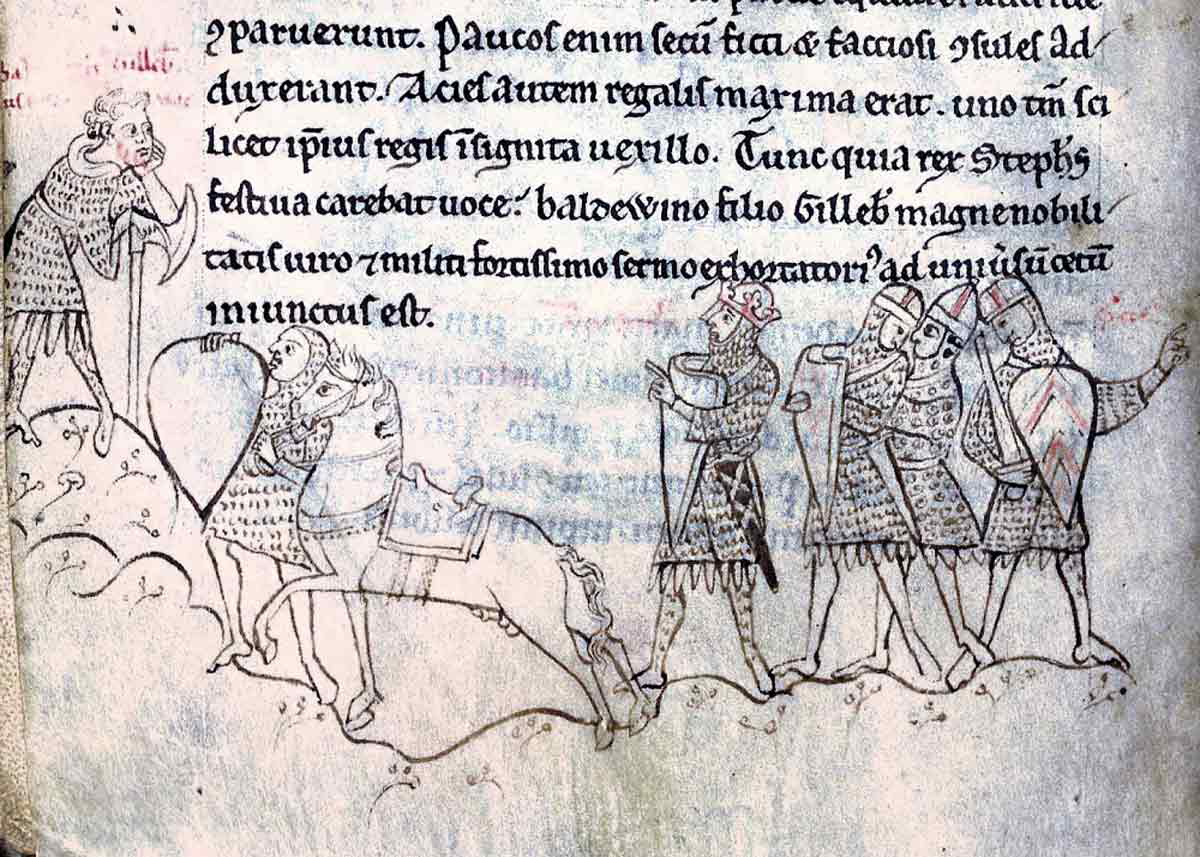 ꝯparuerunt. Paucos enim secū ficti & facciosi ꝯsules ad
duxerant. Acies autem regalis maxima erat. uno tm̄ sci
licet ip̄ius regis īsignita uexillo. Tunc quia rex Steph̄s
festiua carebat uoce: baldewino filio Gilleb̄ magne nobili
tatis uiro ⁊ militi fortissimo sermo exhortatoriꝰ ad uniu̓sū cetū
iniunctus est.